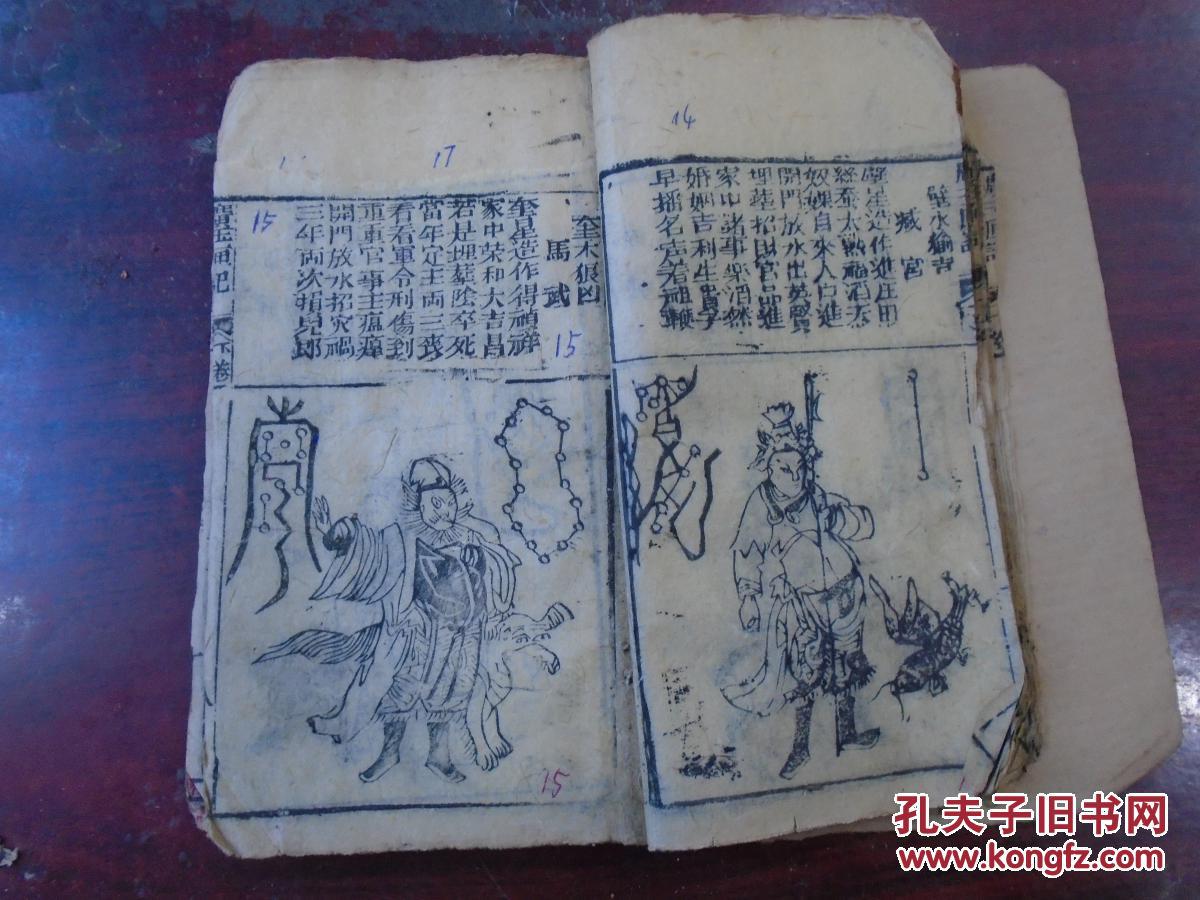 14
壁水貐吉
臧宮
壁星造作進庄田
絲蚕大熟福滔天
奴婢自來人口進
開門放水出英賢
埋葬招財官品進
家中諸事樂滔然
婚姻吉利生貴子
早播名声着祖鞭
17
15
奎木狼凶
馬武
奎星造作得禎祥
家中荣和大吉昌
若是埋葬陰卒死
當年定主両三丧
看看軍令刑傷到
重重官事主瘟瘴
開門放水招灾禍
三年両次損兒郎
15
下卷
15
孔夫子旧书网
www.kongfz.com